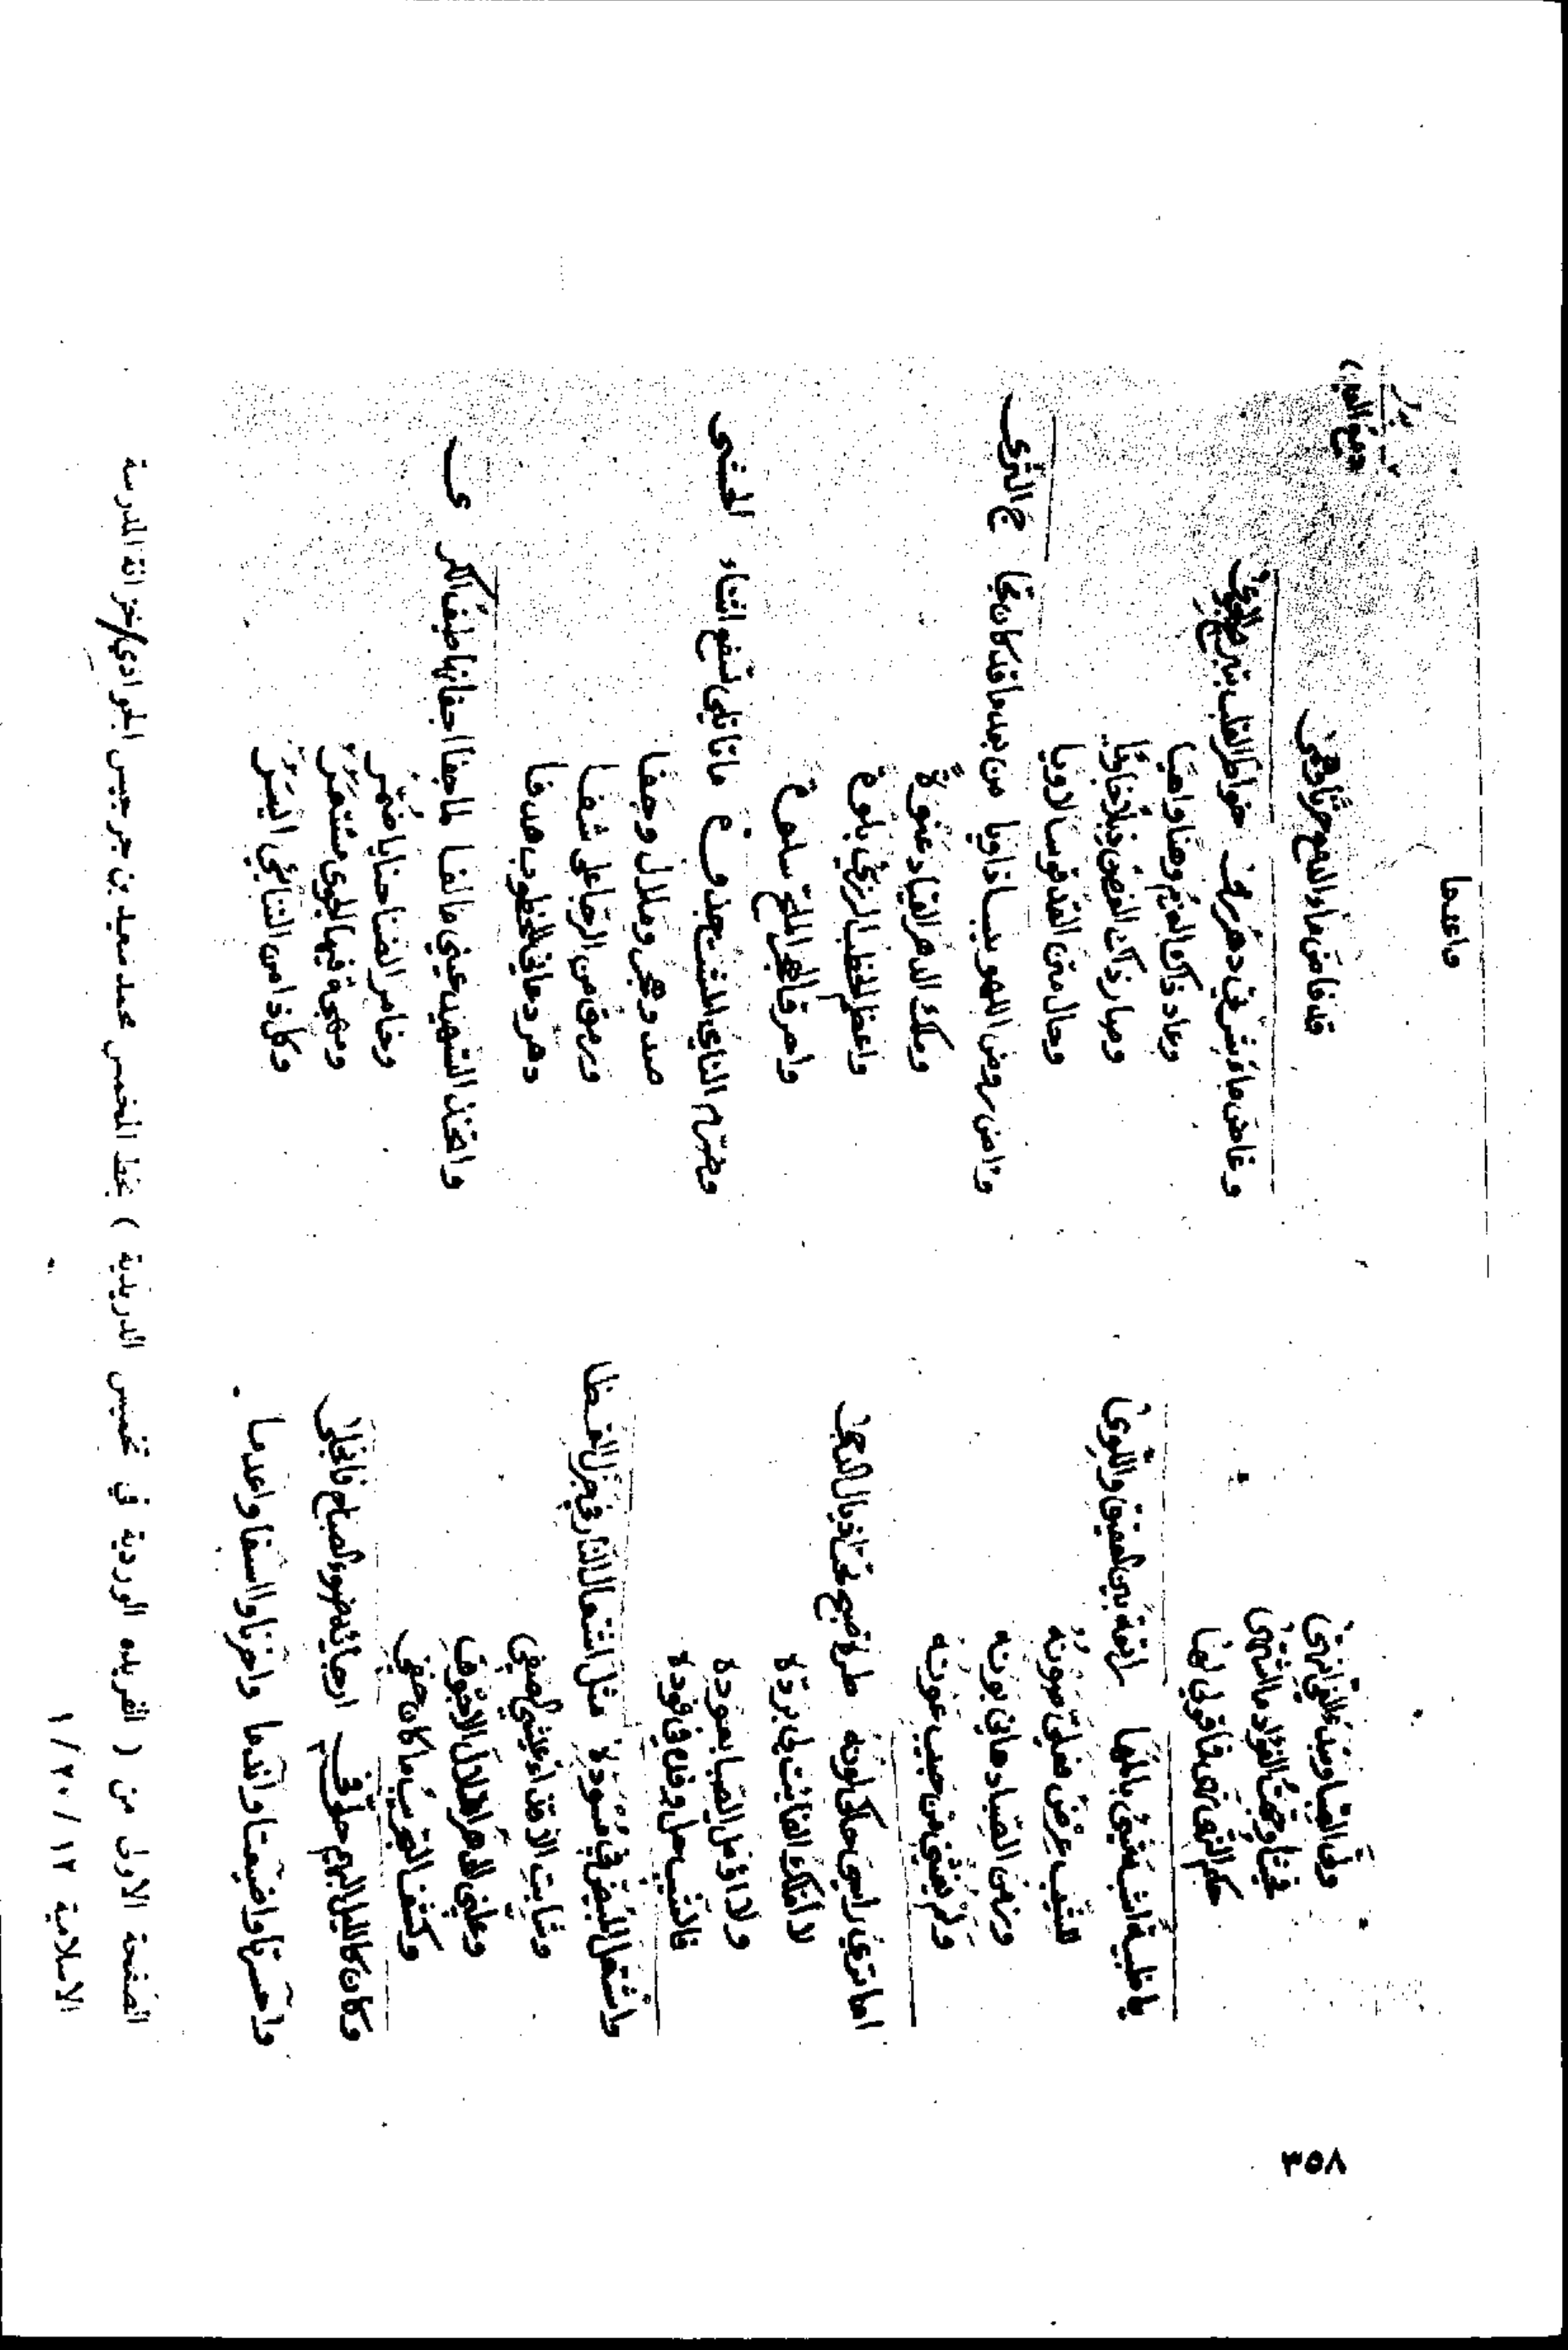 ولى الصبا
حكم النوى
يا ظبية اشبه شيء بالمها راتعة بين العقيق واللوى
للشيب عرض فعلي صونه
الصبا دهاني بونه
ولم يغثني من حبيب عونه
اما تري راسي حاكى لونه طرة صبح تحت اذيال الدجى
لا املك الفائت لي برده
ولا اؤمل الصبا بعوده
فالشيب حل وفده في فوده
واشتعل المبيض في مسوده مثل اشتعال النار في جزل الغضا
وشابت
الدهر
وكشف التجريب ما كان خفي
وكان كالليل البهيم حل في ارجائه ضوء الصباح فانجلى
واحسرتا واضيعتا واندما واحزنا واأسفا واعدما
قد فاض ماء الدمع
وغاض ماء شرتي دهر رمى خواطر القلب بتبريح الجوى
وعاد ذاك العزم وهنا واهيا
وصار ذاك الغصن
وحال متن القد قوسا لاويا
وآض روض اللهو يبسا ذاويا من بعد ما قد كان مجاج الثرى
وملك الدهر القياد عنوة
واعظم الخطب الرزي بلوة
واحرق الهجر الملح سلوة
وضرم النأي المشت جذوة ما تأتلي تسفع اثناء الحشى
صد وهجر وملال وجفا
ورمق من الرجا على شفا
دهر دعاني للخطوب هدفا
واتخذ التسهيد عيني مألفا لما جفا اجفانها طيف الكرى
وخامر الضنا حنايا
ومهجة فيها الجوى
وكل ذا من التنائي
الصفحة الاولى من ( الفريده الوردية في تخميس الدريدية ) بخط المخمس محمد سعيد بن جرجيس الجوادي/خزانة المدرسة
الاسلامية ١٢ / ٢٠ / ١
٣٥٨